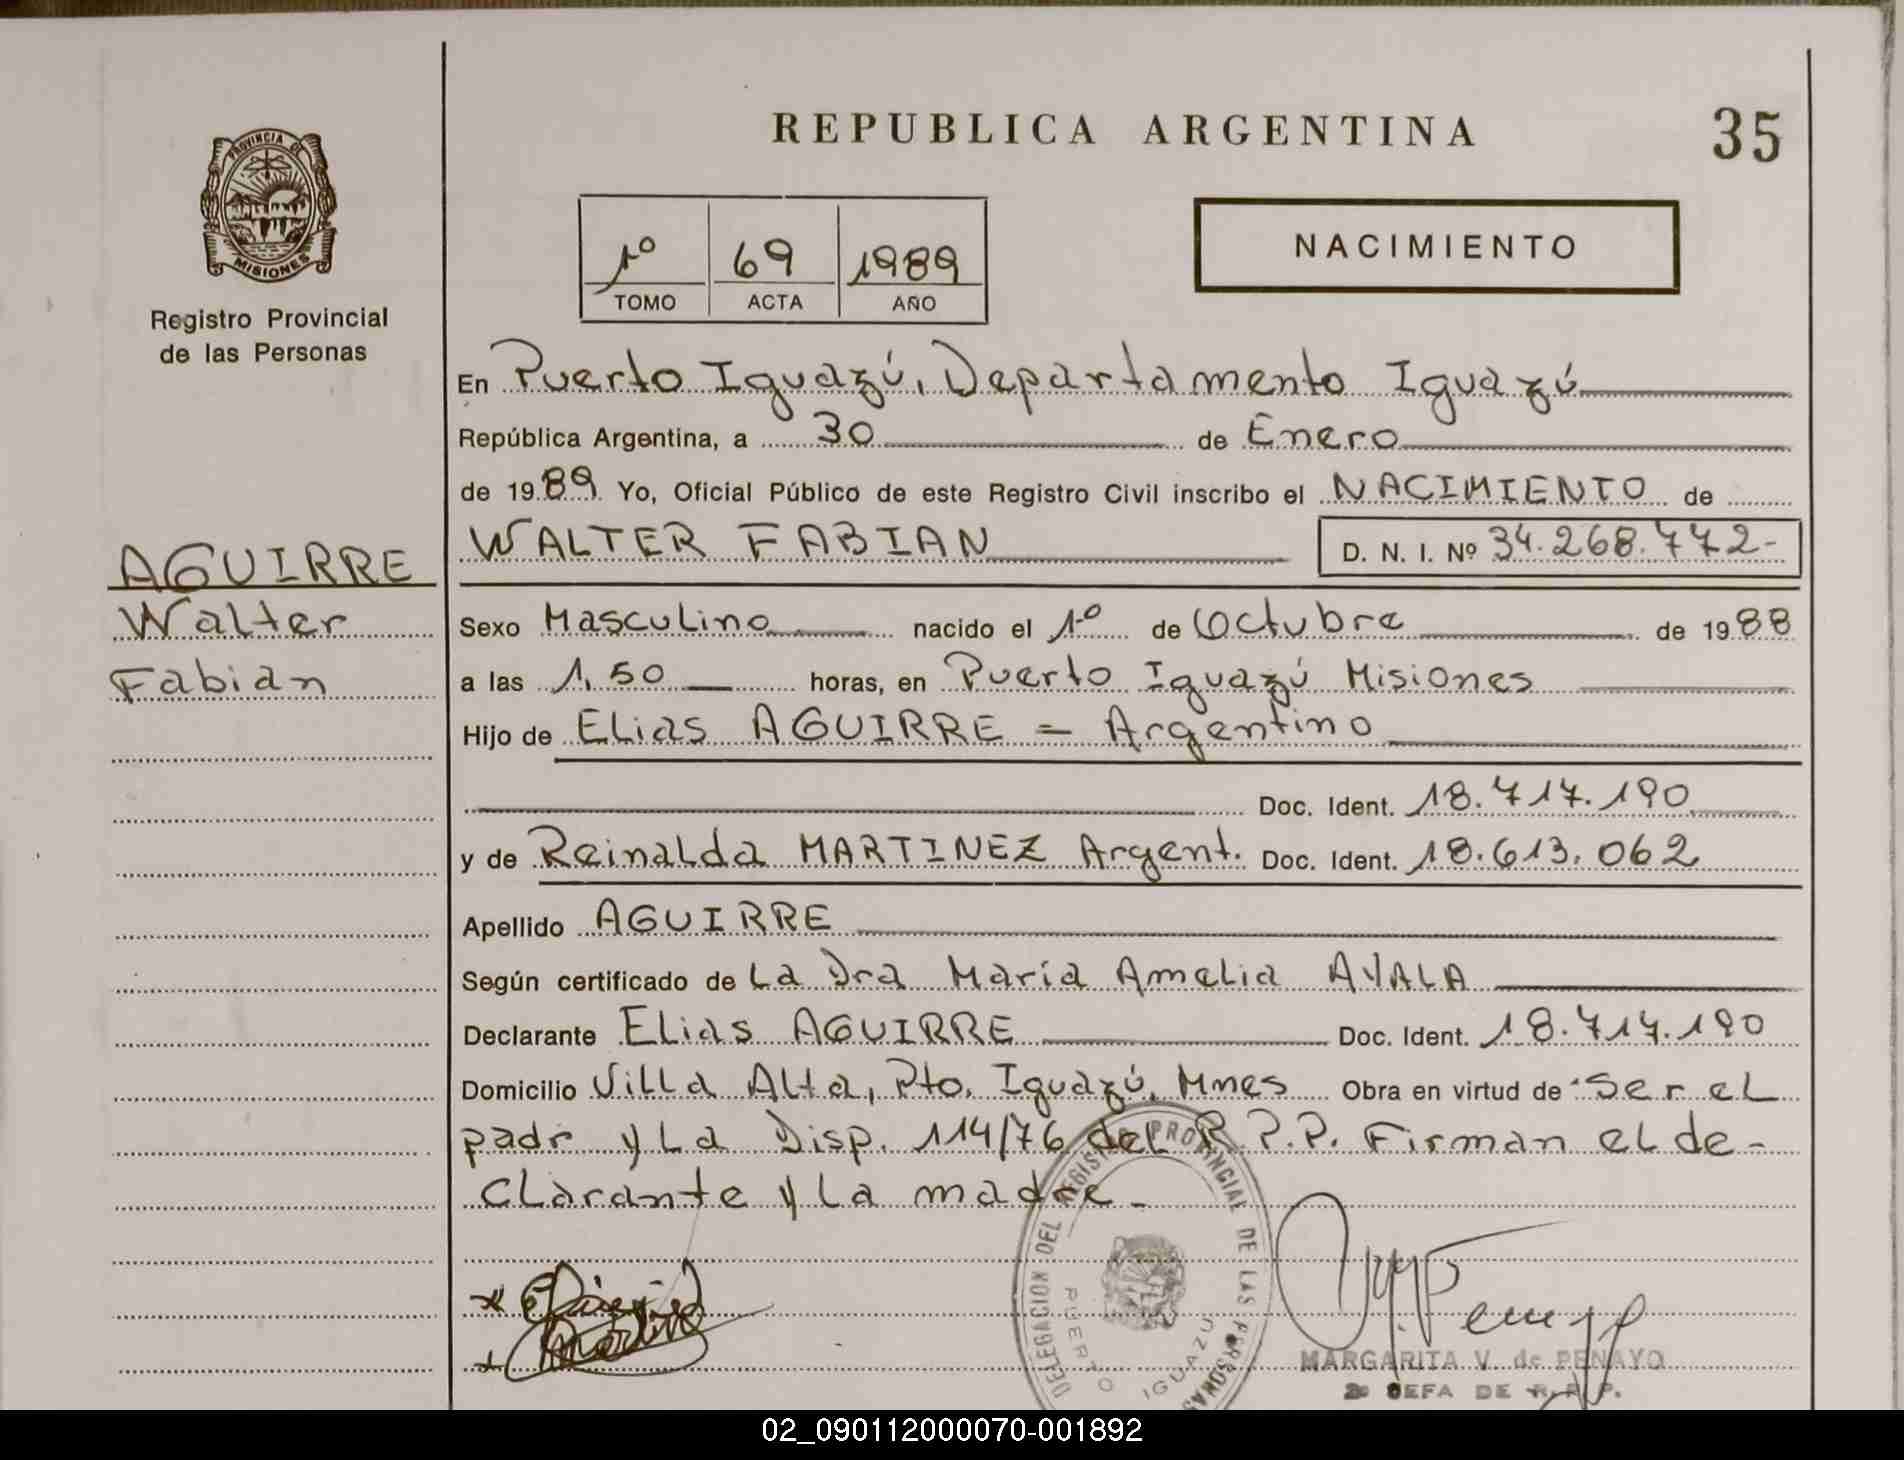 REPUBLICA ARGENTINA
35
PROVINCIA DE MISIONES
Registro Provincial
de las Personas
1º 69 1989
TOMO ACTA AÑO
NACIMIENTO
En Puerto Iguazú, Departamento Iguazú
República Argentina, a 30 de Enero
de 1989 Yo, Oficial Público de este Registro Civil inscribo el NACIMIENTO de
WALTER FABIAN D. N. I. Nº 34.268.772-
AGUIRRE
Walter
Fabian
Sexo Masculino nacido el 1º de Octubre de 1988
a las 1,50 horas, en Puerto Iguazú Misiones
Hijo de Elias AGUIRRE = Argentino
Doc. Ident. 18.717.190
y de Reinalda MARTINEZ Argent. Doc. Ident. 18.613.062
Apellido AGUIRRE
Según certificado de La Dra María Amelia AYALA
Declarante Elias AGUIRRE Doc. Ident. 18.717.190
Domicilio Villa Alta, Pto. Iguazú, Mnes Obra en virtud de ser el
padr y La Disp. 114/76 del R.P.P. Firman el de-
clarante y la madre-
DELEGACION DEL REGISTRO PROVINCIAL DE LAS PERSONAS
PUERTO IGUAZU
MARGARITA V. de PENAYO
2º JEFA DE R.P.P.
02_090112000070-001892